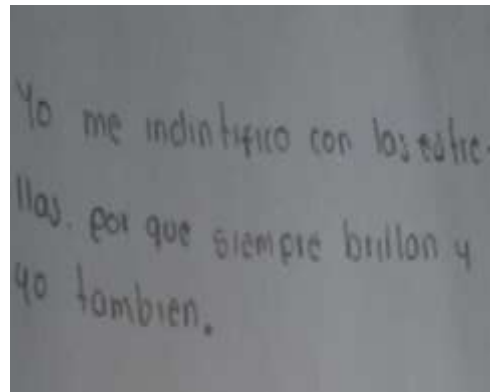 Yo me indintifico con las estre-
llas. por que siempre brillan y
yo tambien.